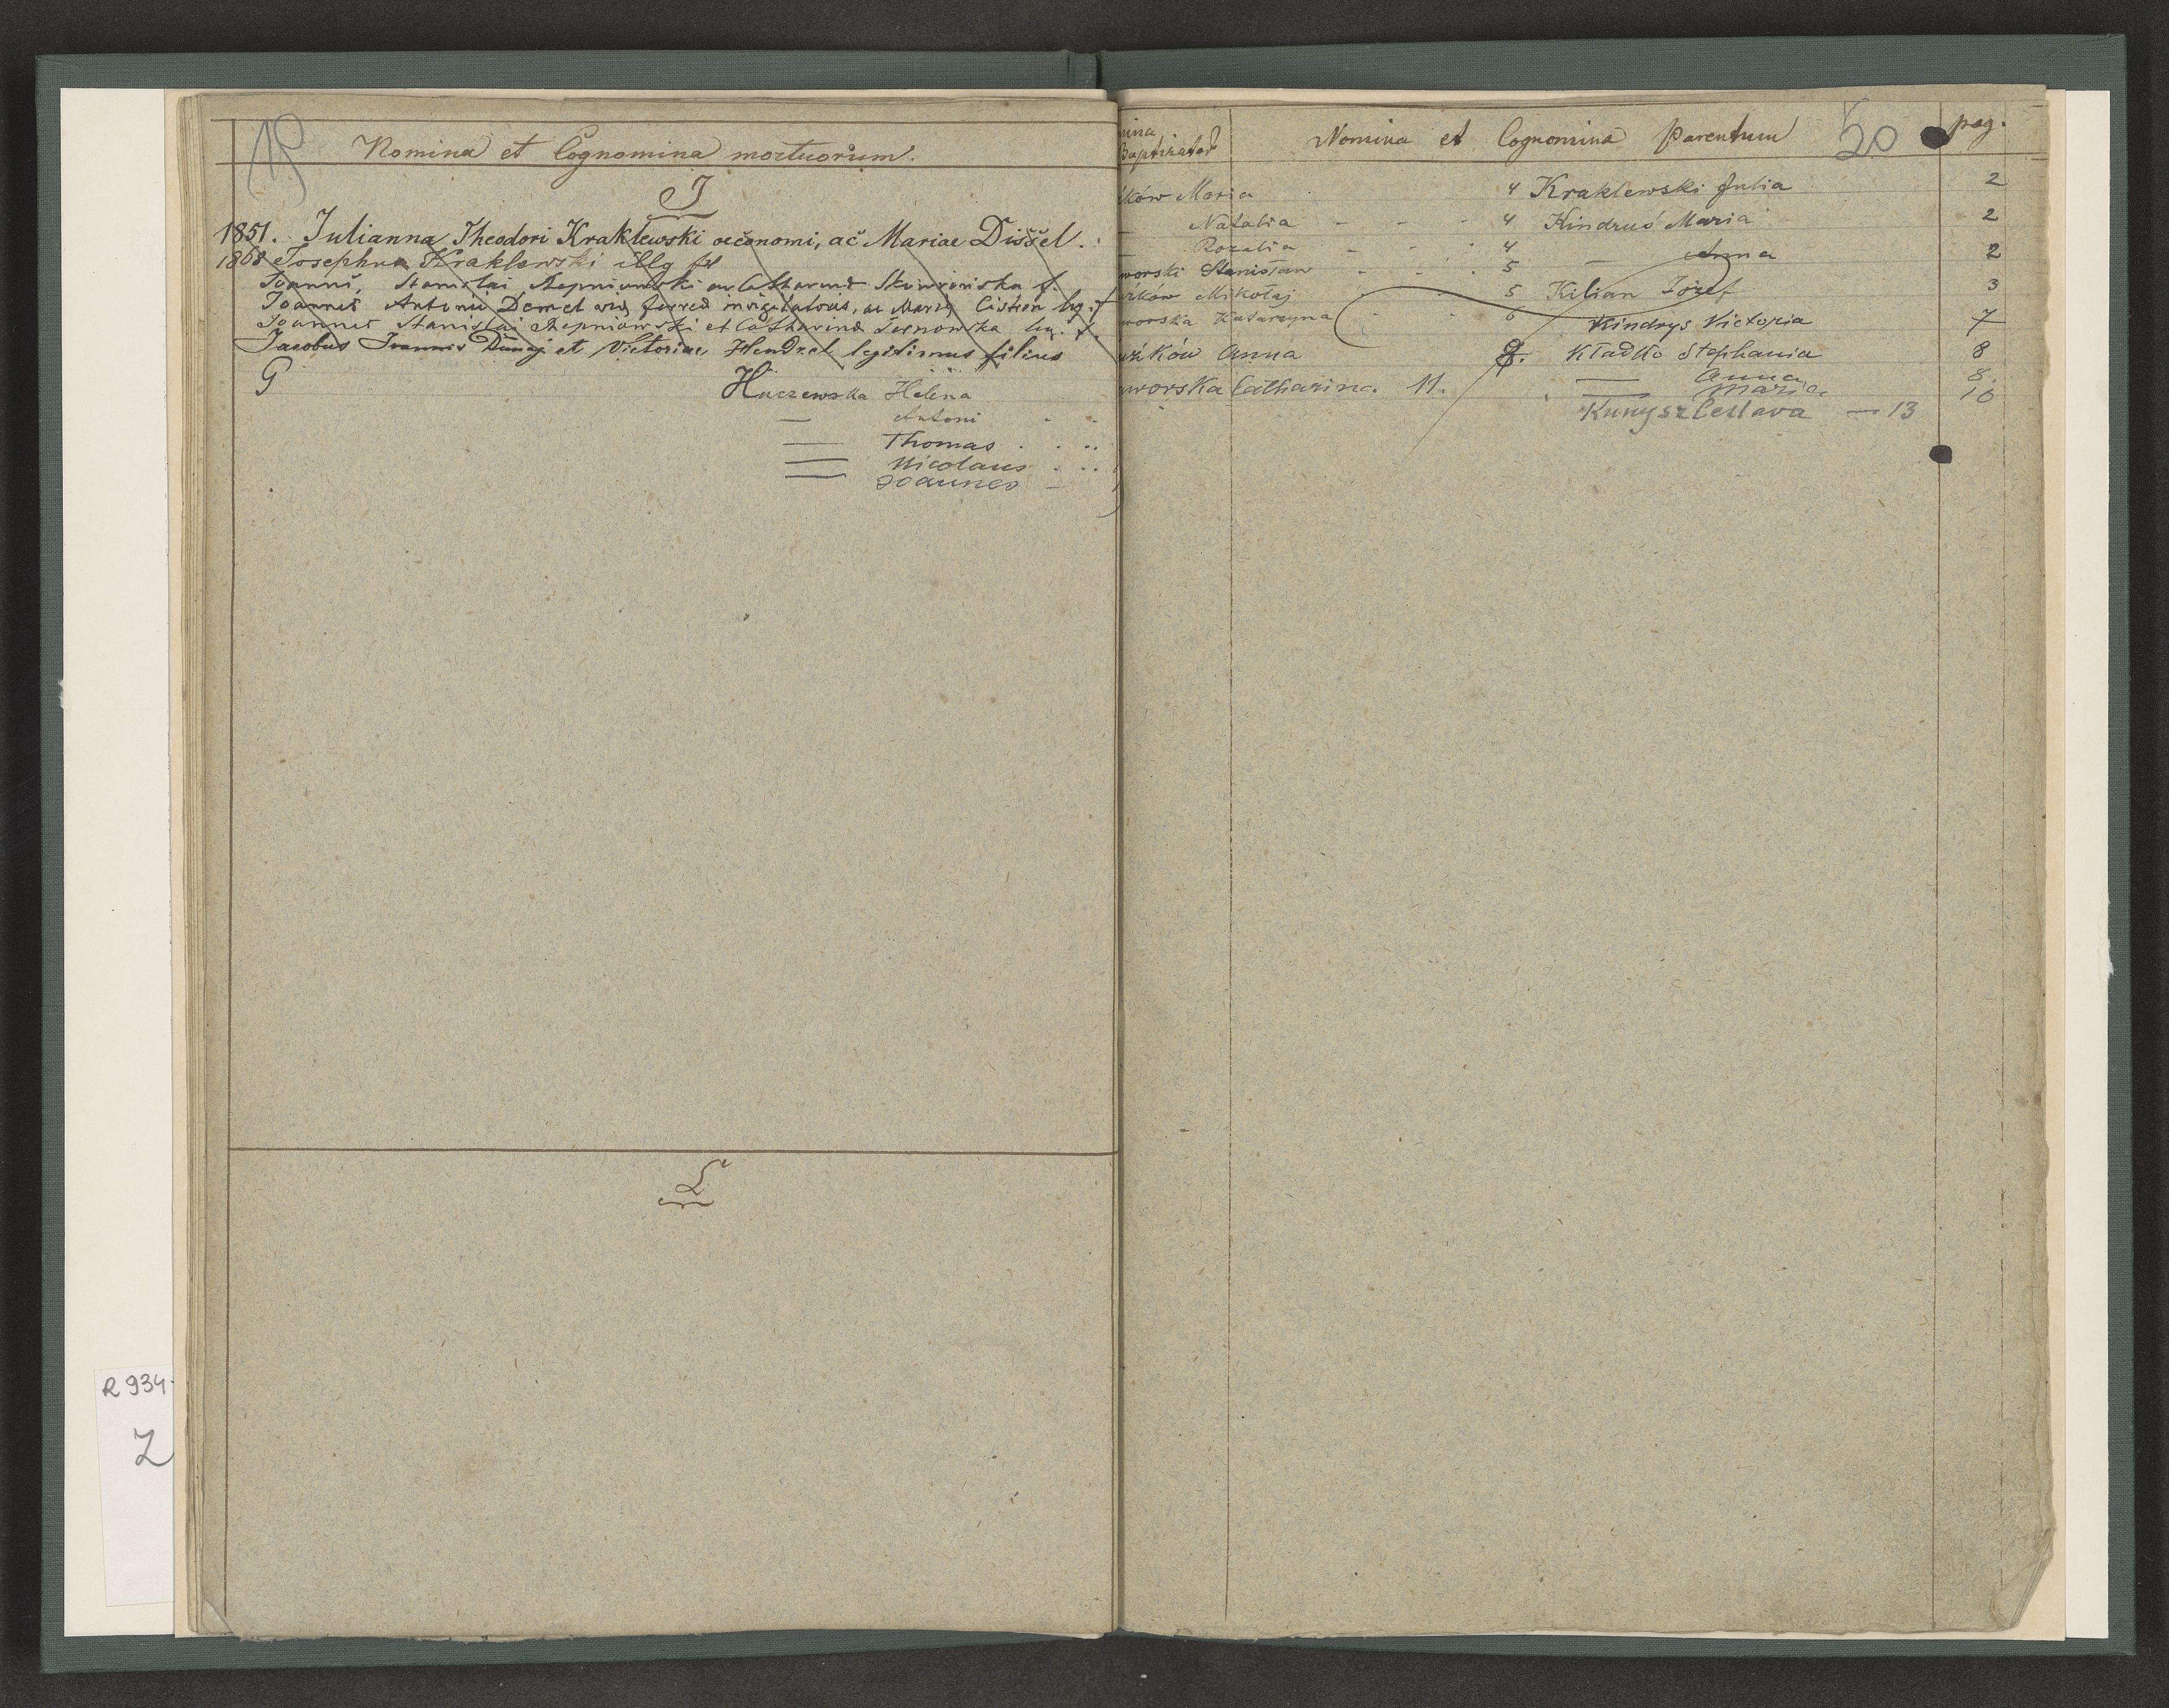 19
Nomina et Cognomina mortuorum.
J
1851. Julianna Theodori Kraklewski oeconomi, ac Mariae Dissel.
1868 Josephus Kraklewski illg fil
Joannes, Stanislai Rzepniowski ac Catharina f.
Joannes Antonii Demel ac Maria leg. f
Joannes Stanislai Rzepniowski et Catharina leg. f.
Jacobus Joannis Dunaj et Victoriae Hendzel legitimus filius
G
Huczewska Helena
— Antoni
— Thomas
— Nicolaus
— Joannes
L
R 934
Z
mina Baptizator
Nomina et Cognomina Parentum
50
pag.
ków Maria 4 Kraklewski Julia 2
Natalia - - - 4 Kindruś Maria 2
— Rozalia - - 4 — Anna 2
worski Stanisław - 5
ków Mikołaj 5 Kilian Józef 3
worska Katarzyna 6 Kindrys Victoria 7
ków Anna 8. Kładko Stephania 8
— Anna 8.
worska Catharina. 11. — Maria 10
Kunysz Ceslava — 13